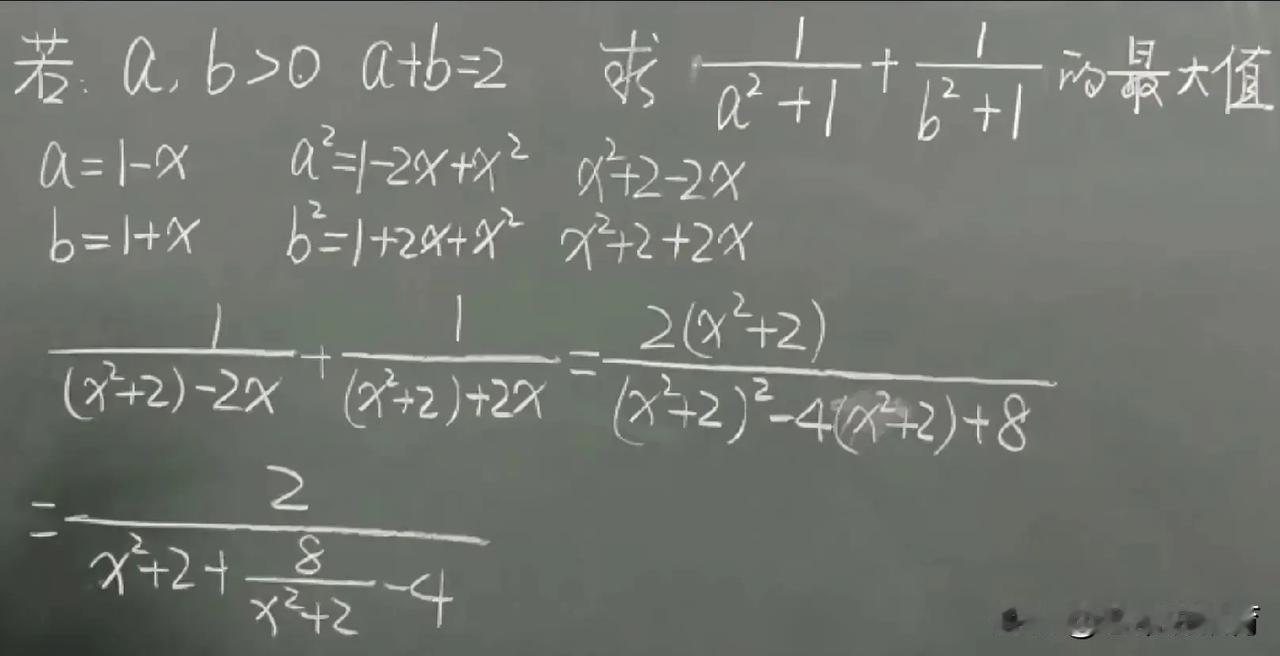 若: a, b>0 a+b=2 求 1/(a²+1) + 1/(b²+1) 的最大值
a=1-x a²=1-2x+x² x²+2-2x
b=1+x b²=1+2x+x² x²+2+2x
1/((x²+2)-2x) + 1/((x²+2)+2x) = 2(x²+2)/((x²+2)²-4(x²+2)+8)
= 2/(x²+2+8/(x²+2)-4)